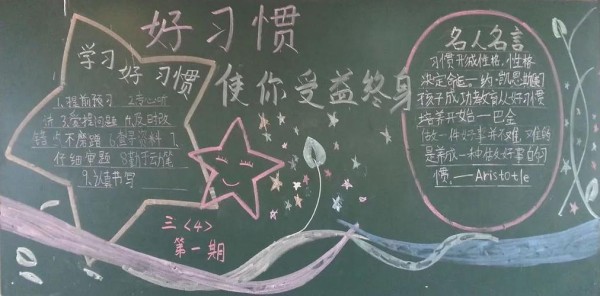 好习惯
使你受益终身
学习
好习惯
1.提前预习 2专心听
讲 3.受挫问题 4.及时改
错 5不磨蹭 6查字资料 7.
仔细审题 8勤于动
9.认真书写
三〈4〉
第一期
名人名言
习惯形成性格,性格
决定命运—约·凯恩斯
孩子成功教育从好习惯
培养开始—巴金
做一件好事并不难,难的
是养成一种做好事的习
惯。—Aristotle